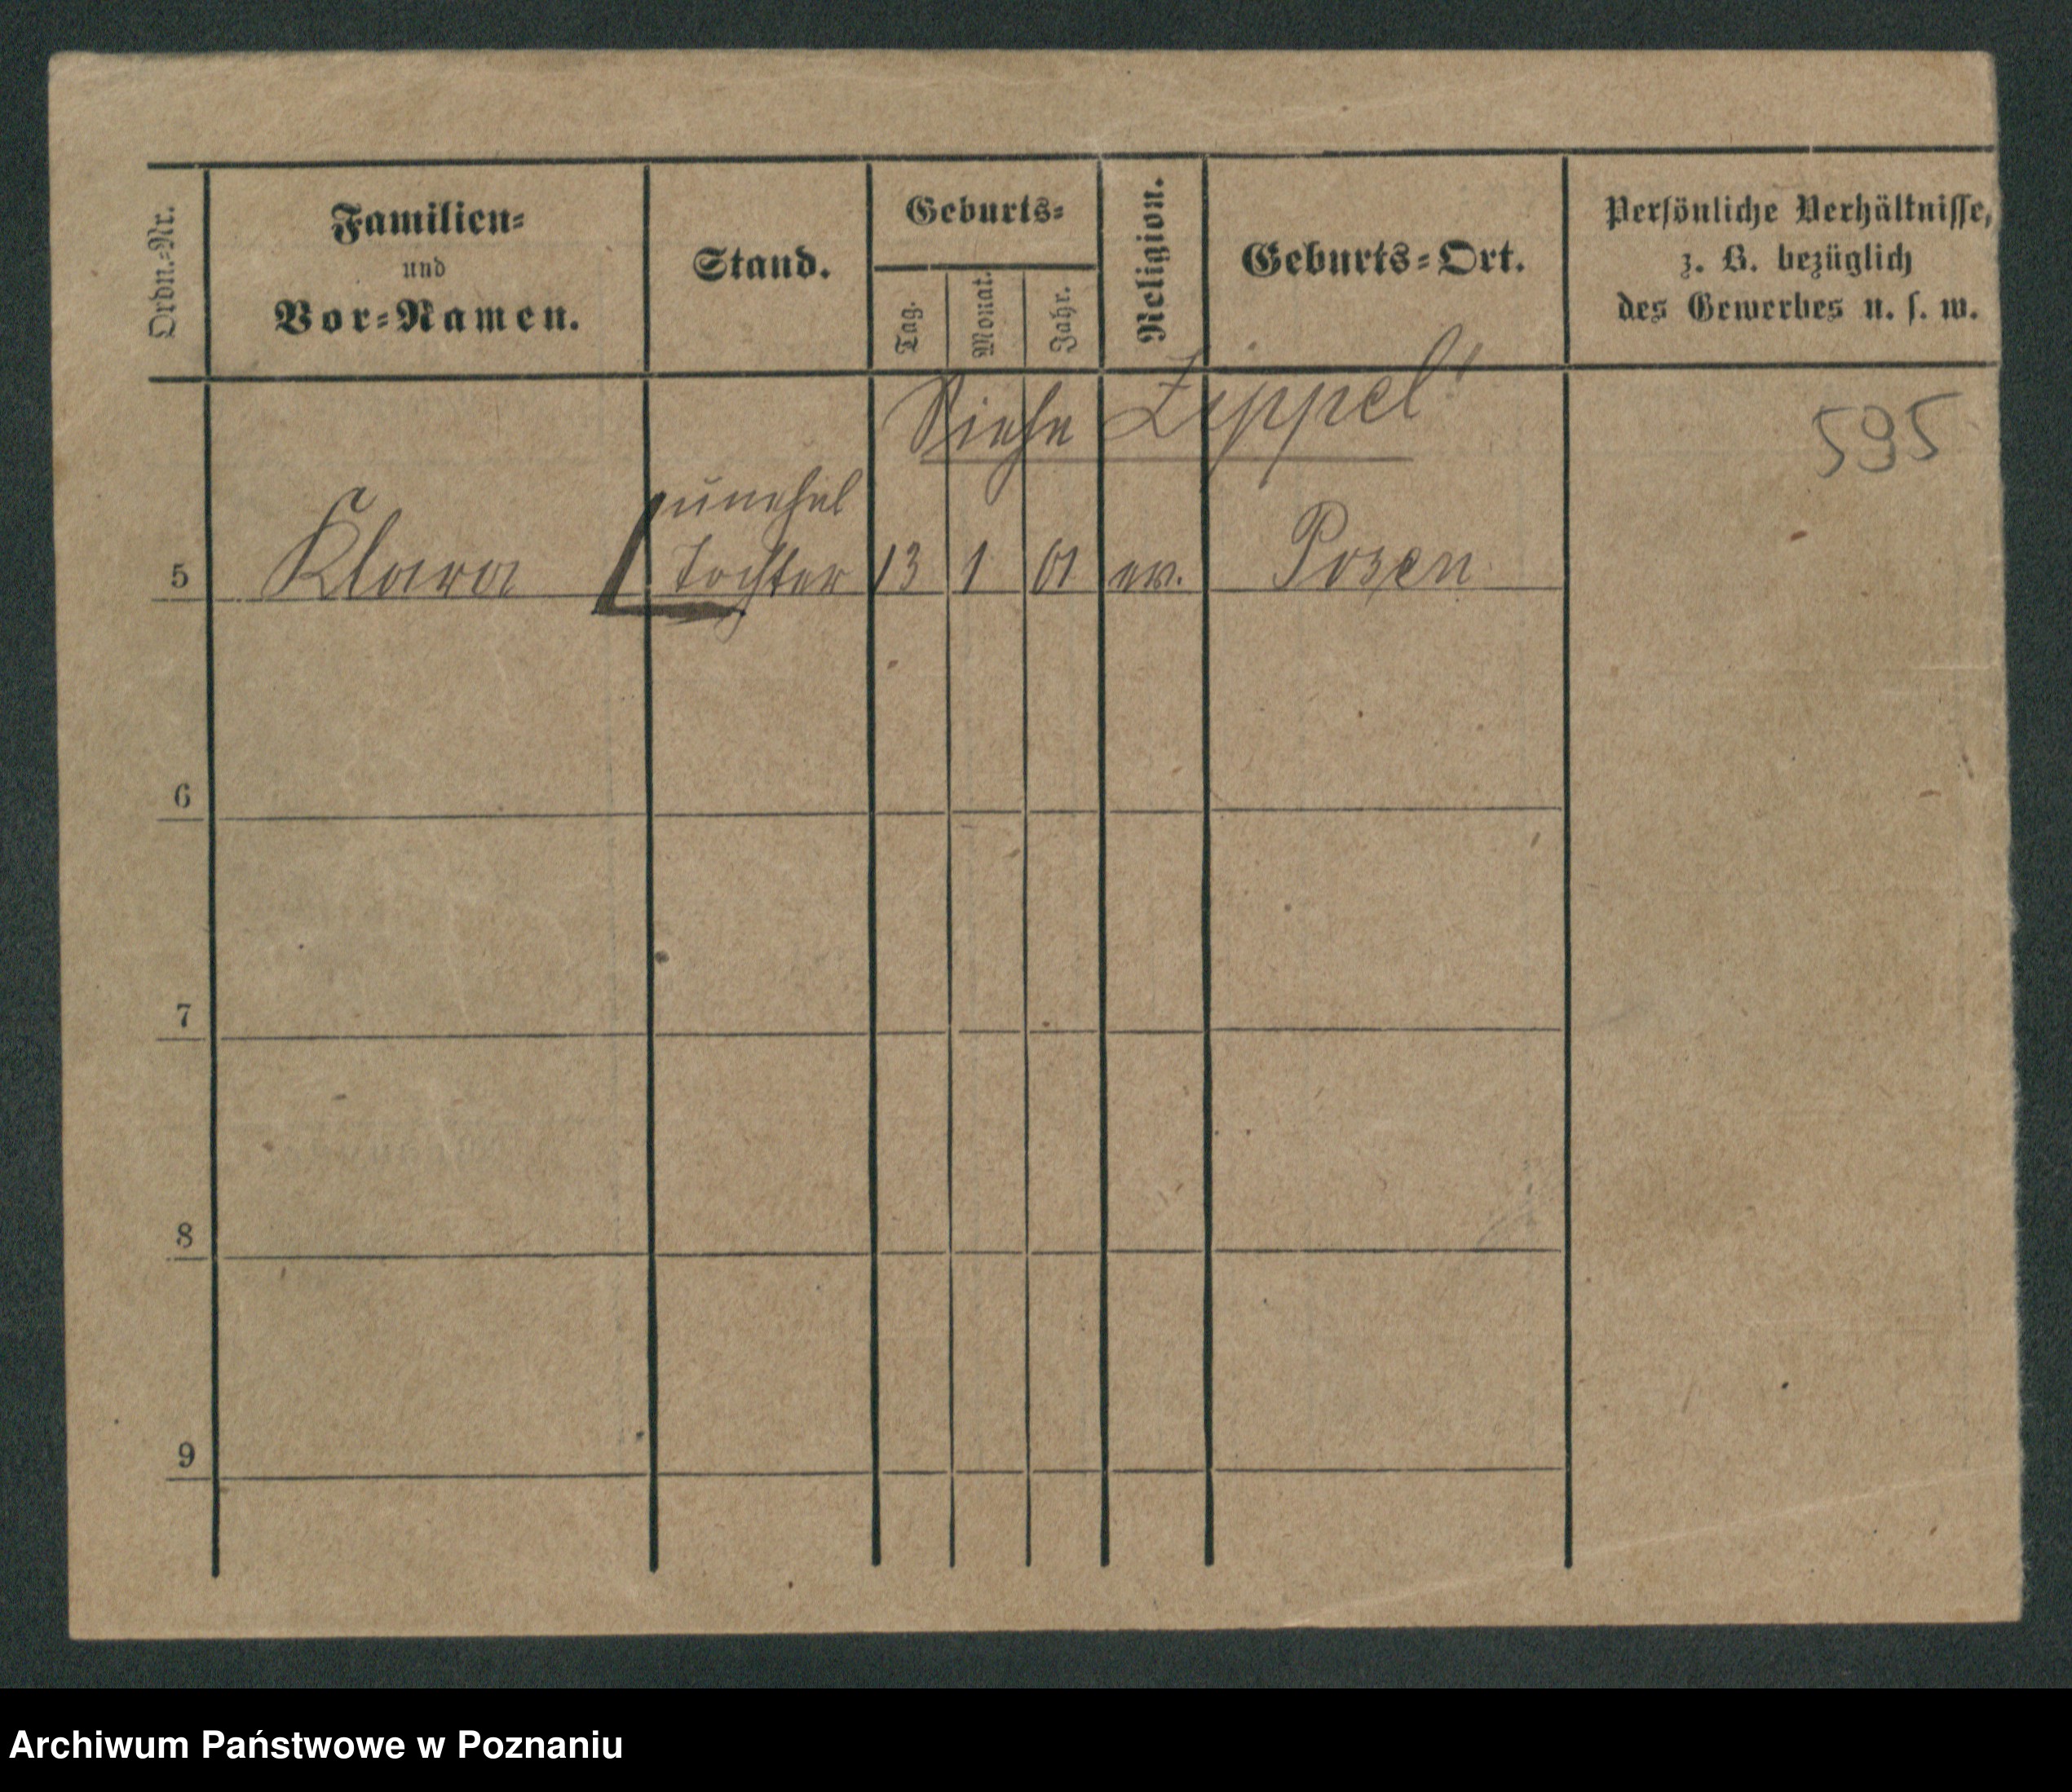 Ordn.-Nr.
Familien-
und
Vor-Namen.
Stand.
Geburts-
Tag.
Monat.
Jahr.
Religion.
Geburts-Ort.
Persönliche Verhältnisse,
z. B. bezüglich
des Gewerbes u. s. w.
Siehe Zippel
595
unehel
5 Klara Tochter 13 1 01 ev. Posen
6
7
8
9
Archiwum Państwowe w Poznaniu